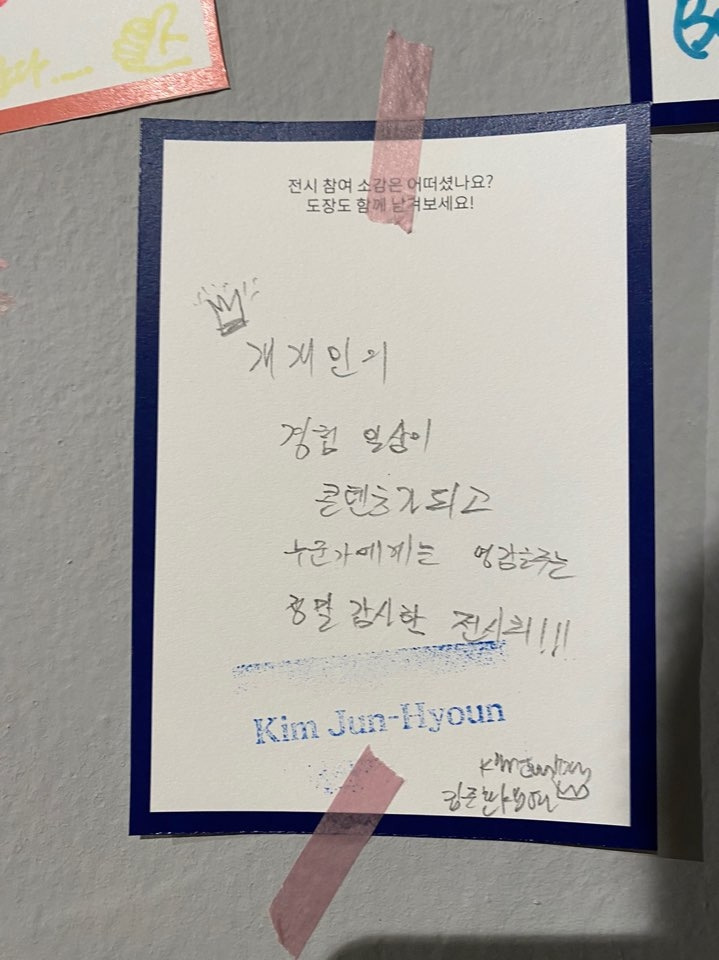 전시 참여 소감은 어떠셨나요?
도장도 함께 남겨보세요!
개개인의
경험 일상이
콘텐츠가되고
누군가에게는 영감을주는
정말 감사한 전시회!!!
Kim Jun-Hyoun